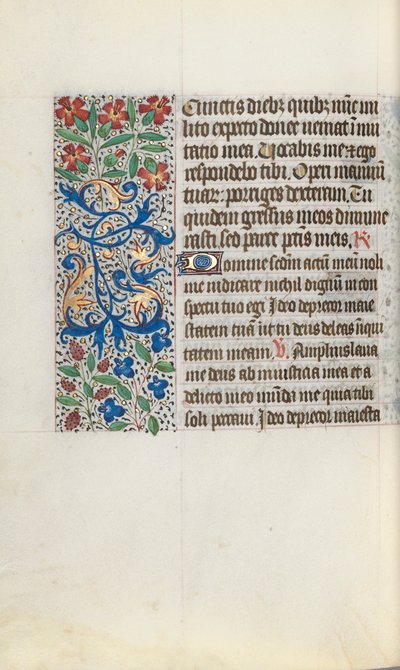 Cunctis diebꝫ quibꝫ nūc mi
lito expecto donec veniat īmu
tatio mea. Vocabis me ⁊ ego
respondebo tibi. Operi manuū
tuaꝝ porriges dexteram. Tu
quidem gressus meos dinume
rasti sed parce pctīs meis. R
Domine scdm actū meū noli
me iudicare nichil dignū in con
spectu tuo egi. Ideo deprecor maie
statem tuā ut tu deus deleas īiqui
tatem meam. V. Amplius laua
me deus ab iniusticia mea et a
delicto meo mūda me quia tibi
soli peccaui. Ideo deprecor maiesta